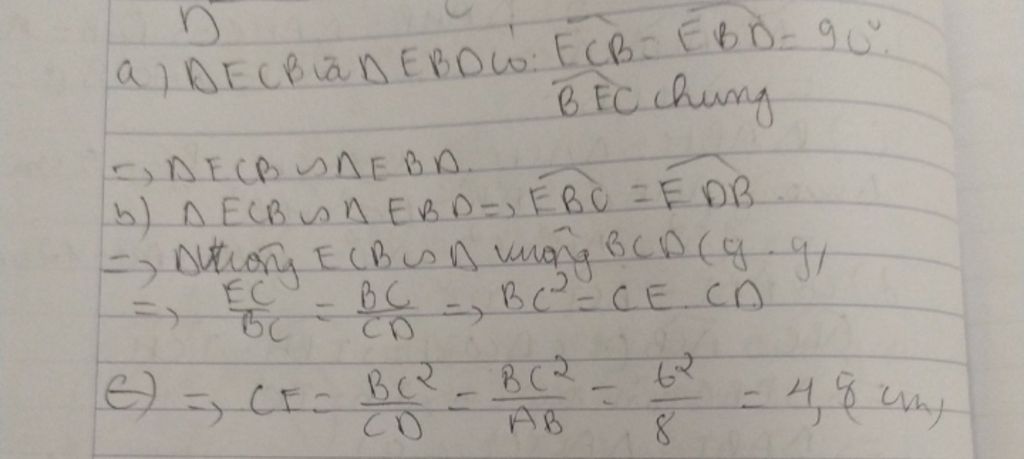 D
a) Δ ECB và Δ EBD có: ECB = EBD = 90°.
BEC chung
=> Δ ECB ∽ Δ EBD.
b) Δ ECB ∽ Δ EBD => EBC = EDB
=> Δ vuông ECB ∽ Δ vuông BCD (g.g)
=> EC/BC = BC/CD => BC² = CE. CD
c) => CE = BC²/CD = BC²/AB = 6²/8 = 4,8 cm